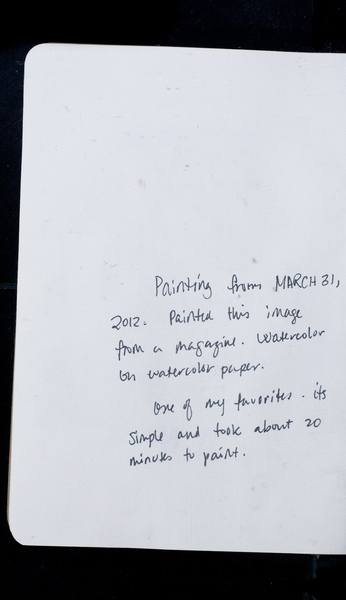 Painting from MARCH 31,
2012. Painted this image
from a magazine. Watercolor
on watercolor paper.
One of my favorites. its
simple and took about 20
minutes to paint.